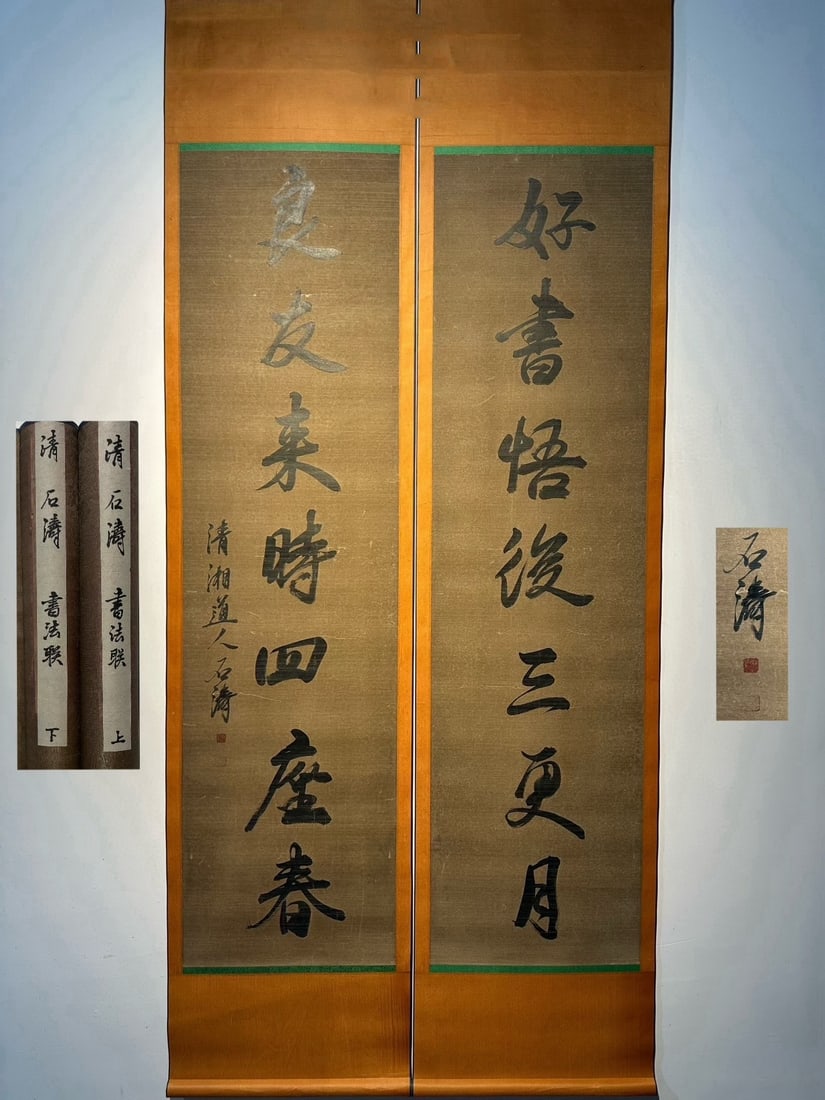 好書悟後三更月
良友来時四座春
清湘道人石濤
清 石濤 書法联 上
清 石濤 書法联 下
石濤